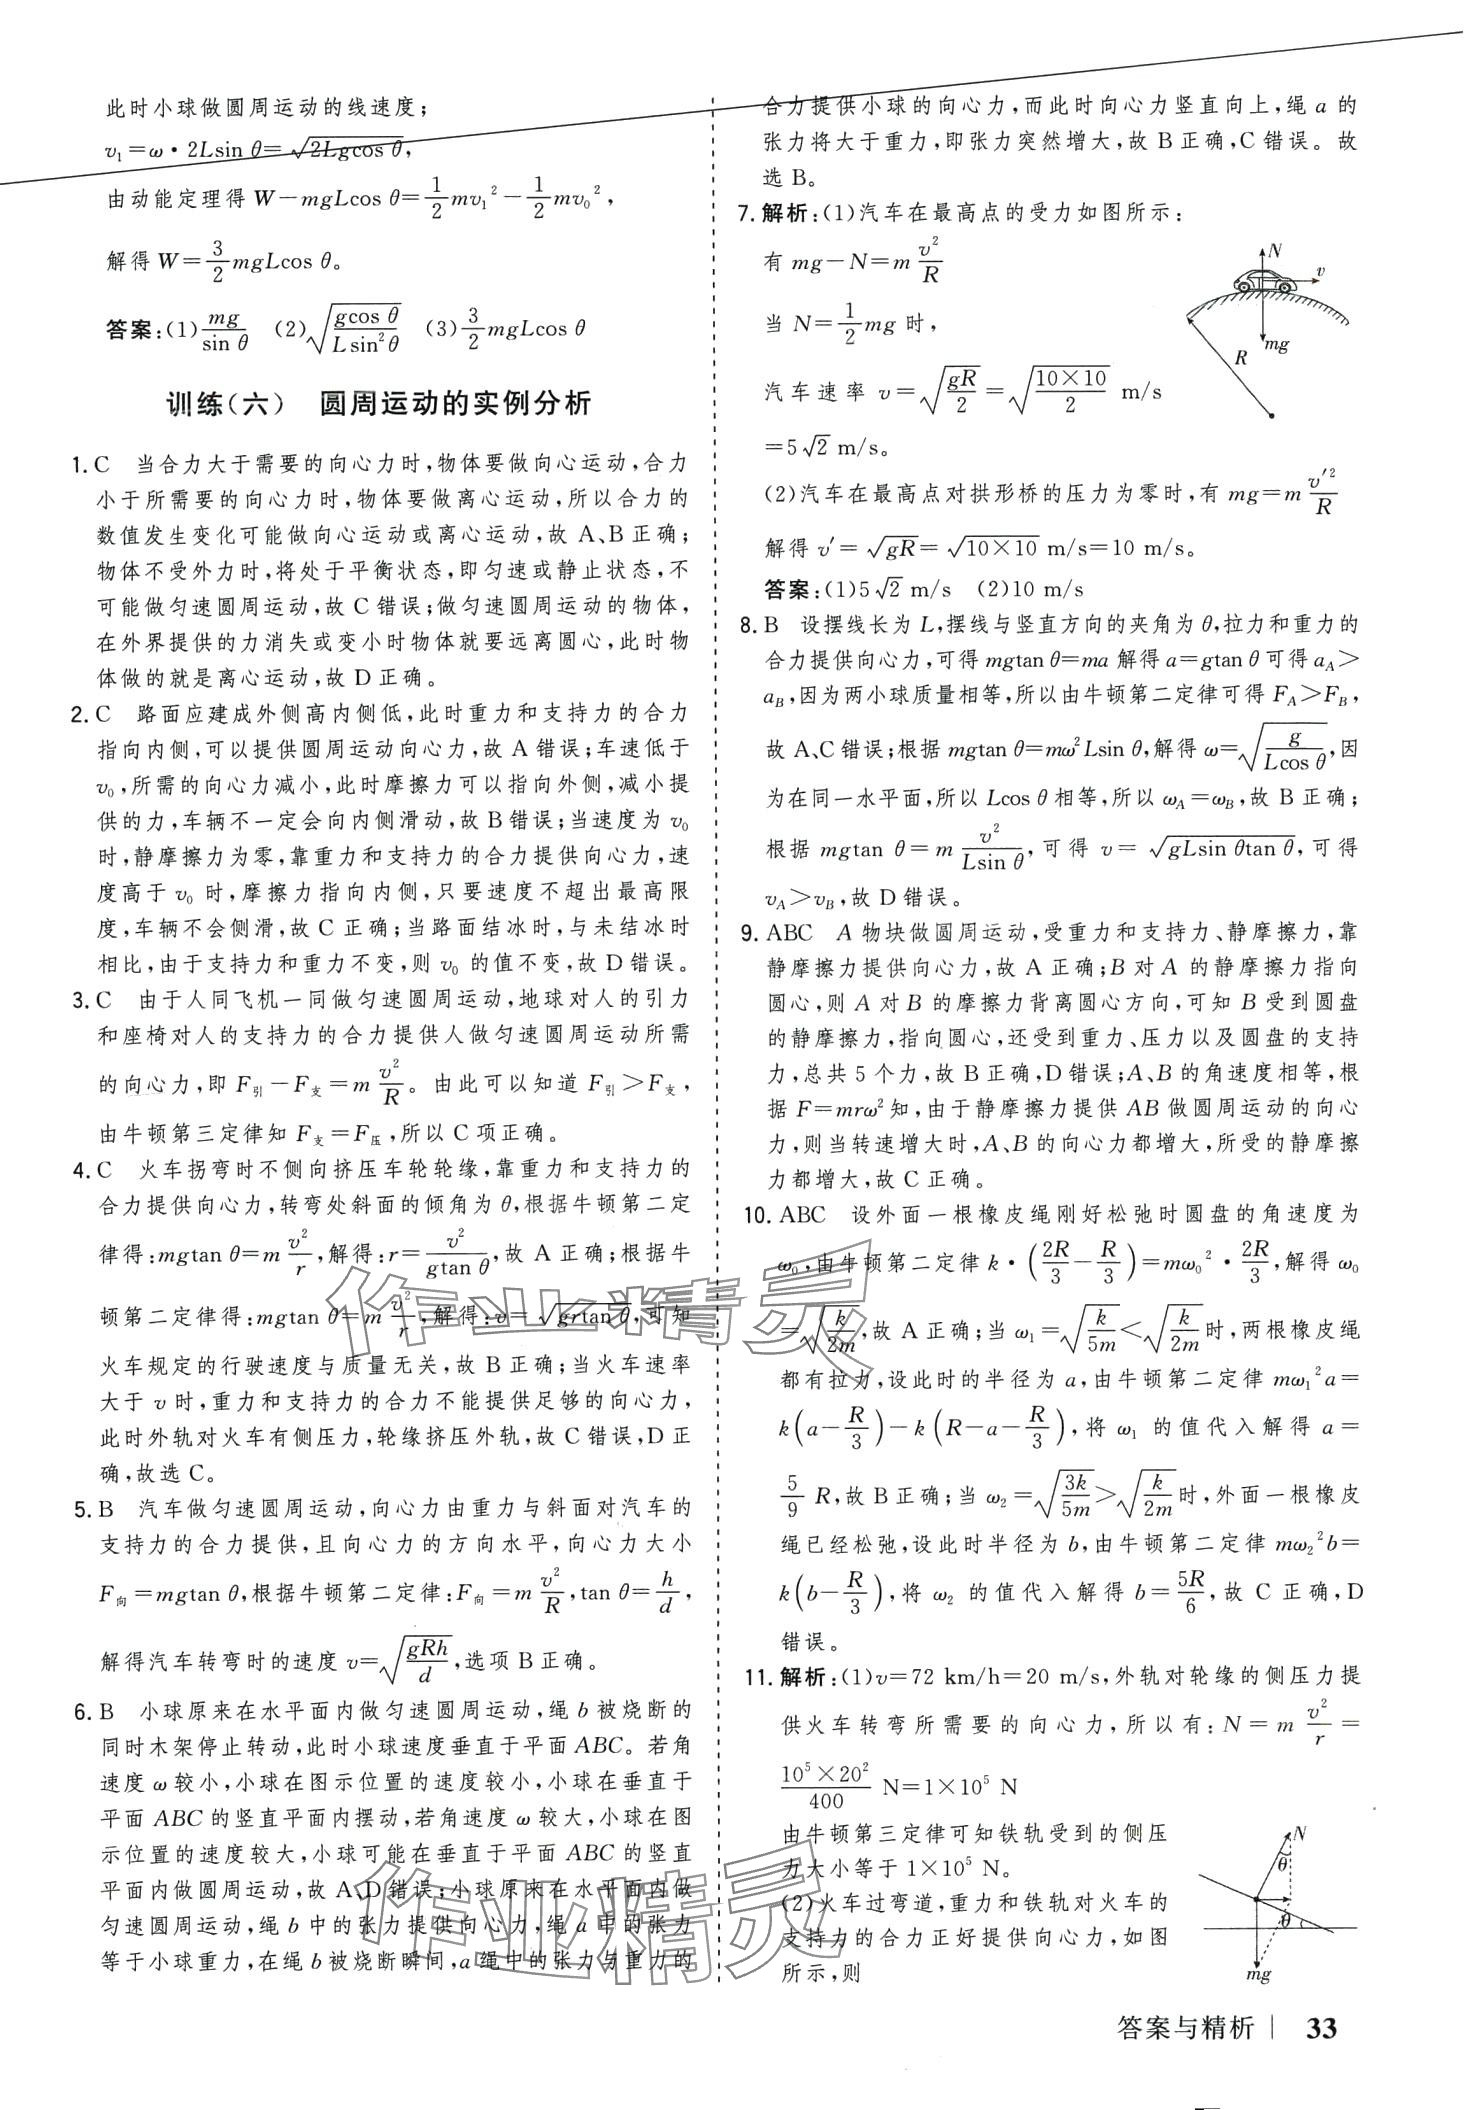 此时小球做圆周运动的线速度；
v₁＝ω·2Lsin θ＝√(2Lgcos θ)，
由动能定理得 W－mgLcos θ＝1/2 mv₁²－1/2 mv₀²，
解得 W＝3/2 mgLcos θ。
答案：(1) mg/sin θ　(2) √(gcos θ/Lsin²θ)　(3) 3/2 mgLcos θ
训练(六)　圆周运动的实例分析
1. C　当合力大于需要的向心力时，物体要做向心运动，合力
小于所需要的向心力时，物体要做离心运动，所以合力的
数值发生变化可能做向心运动或离心运动，故 A、B 正确；
物体不受外力时，将处于平衡状态，即匀速或静止状态，不
可能做匀速圆周运动，故 C 错误；做匀速圆周运动的物体，
在外界提供的力消失或变小时物体就要远离圆心，此时物
体做的就是离心运动，故 D 正确。
2. C　路面应建成外侧高内侧低，此时重力和支持力的合力
指向内侧，可以提供圆周运动向心力，故 A 错误；车速低于
v₀，所需的向心力减小，此时摩擦力可以指向外侧，减小提
供的力，车辆不一定会向内侧滑动，故 B 错误；当速度为 v₀
时，静摩擦力为零，靠重力和支持力的合力提供向心力，速
度高于 v₀ 时，摩擦力指向内侧，只要速度不超出最高限
度，车辆不会侧滑，故 C 正确；当路面结冰时，与未结冰时
相比，由于支持力和重力不变，则 v₀ 的值不变，故 D 错误。
3. C　由于人同飞机一同做匀速圆周运动，地球对人的引力
和座椅对人的支持力的合力提供人做匀速圆周运动所需
的向心力，即 F引－F支＝m v²/R。由此可以知道 F引＞F支，
由牛顿第三定律知 F支＝F压，所以 C 项正确。
4. C　火车拐弯时不侧向挤压车轮轮缘，靠重力和支持力的
合力提供向心力，转弯处斜面的倾角为 θ，根据牛顿第二定
律得：mgtan θ＝m v²/r，解得：r＝v²/(gtan θ)，故 A 正确；根据牛
顿第二定律得：mgtan θ＝m v²/r，解得：v＝√(grtan θ)，可知
火车规定的行驶速度与质量无关，故 B 正确；当火车速率
大于 v 时，重力和支持力的合力不能提供足够的向心力，
此时外轨对火车有侧压力，轮缘挤压外轨，故 C 错误，D 正
确，故选 C。
5. B　汽车做匀速圆周运动，向心力由重力与斜面对汽车的
支持力的合力提供，且向心力的方向水平，向心力大小
F向＝mgtan θ，根据牛顿第二定律：F向＝m v²/R，tan θ＝h/d，
解得汽车转弯时的速度 v＝√(gRh/d)，选项 B 正确。
6. B　小球原来在水平面内做匀速圆周运动，绳 b 被烧断的
同时木架停止转动，此时小球速度垂直于平面 ABC。若角
速度 ω 较小，小球在图示位置的速度较小，小球在垂直于
平面 ABC 的竖直平面内摆动，若角速度 ω 较大，小球在图
示位置的速度较大，小球可能在垂直于平面 ABC 的竖直
平面内做圆周运动，故 A、D 错误；小球原来在水平面内做
匀速圆周运动，绳 b 中的张力提供向心力，绳 a 中的张力
等于小球重力，在绳 b 被烧断瞬间，a 绳中的张力与重力的
合力提供小球的向心力，而此时向心力竖直向上，绳 a 的
张力将大于重力，即张力突然增大，故 B 正确，C 错误。故
选 B。
7. 解析：(1)汽车在最高点的受力如图所示：
有 mg－N＝m v²/R
当 N＝1/2 mg 时，
汽车速率 v＝√(gR/2)＝√(10×10/2) m/s
＝5√2 m/s。
N
v
mg
R
(2)汽车在最高点对拱形桥的压力为零时，有 mg＝m v′²/R
解得 v′＝√(gR)＝√(10×10) m/s＝10 m/s。
答案：(1)5√2 m/s　(2)10 m/s
8. B　设摆线长为 L，摆线与竖直方向的夹角为 θ，拉力和重力的
合力提供向心力，可得 mgtan θ＝ma 解得 a＝gtan θ 可得 a_A＞
a_B，因为两小球质量相等，所以由牛顿第二定律可得 F_A＞F_B，
故 A、C 错误；根据 mgtan θ＝mω²Lsin θ，解得 ω＝√(g/(Lcos θ))，因
为在同一水平面，所以 Lcos θ 相等，所以 ω_A＝ω_B，故 B 正确；
根据 mgtan θ＝m v²/(Lsin θ)，可得 v＝√(gLsin θtan θ)，可得
v_A＞v_B，故 D 错误。
9. ABC　A 物块做圆周运动，受重力和支持力、静摩擦力，靠
静摩擦力提供向心力，故 A 正确；B 对 A 的静摩擦力指向
圆心，则 A 对 B 的摩擦力背离圆心方向，可知 B 受到圆盘
的静摩擦力，指向圆心，还受到重力、压力以及圆盘的支持
力，总共 5 个力，故 B 正确，D 错误；A、B 的角速度相等，根
据 F＝mrω² 知，由于静摩擦力提供 AB 做圆周运动的向心
力，则当转速增大时，A、B 的向心力都增大，所受的静摩擦
力都增大，故 C 正确。
10. ABC　设外面一根橡皮绳刚好松弛时圆盘的角速度为
ω₀，由牛顿第二定律 k·(2R/3－R/3)＝mω₀²·2R/3，解得 ω₀
＝√(k/2m)，故 A 正确；当 ω₁＝√(k/5m)＜√(k/2m)时，两根橡皮绳
都有拉力，设此时的半径为 a，由牛顿第二定律 mω₁²a＝
k(a－R/3)－k(R－a－R/3)，将 ω₁ 的值代入解得 a＝
5/9 R，故 B 正确；当 ω₂＝√(3k/5m)＞√(k/2m)时，外面一根橡皮
绳已经松弛，设此时半径为 b，由牛顿第二定律 mω₂²b＝
k(b－R/3)，将 ω₂ 的值代入解得 b＝5R/6，故 C 正确，D
错误。
11. 解析：(1)v＝72 km/h＝20 m/s，外轨对轮缘的侧压力提
供火车转弯所需要的向心力，所以有：N＝m v²/r＝
10⁵×20²/400 N＝1×10⁵ N
由牛顿第三定律可知铁轨受到的侧压
力大小等于 1×10⁵ N。
(2)火车过弯道，重力和铁轨对火车的
支持力的合力正好提供向心力，如图
所示，则
N
θ
θ
mg
作业精灵
作业精灵
答案与精析　33